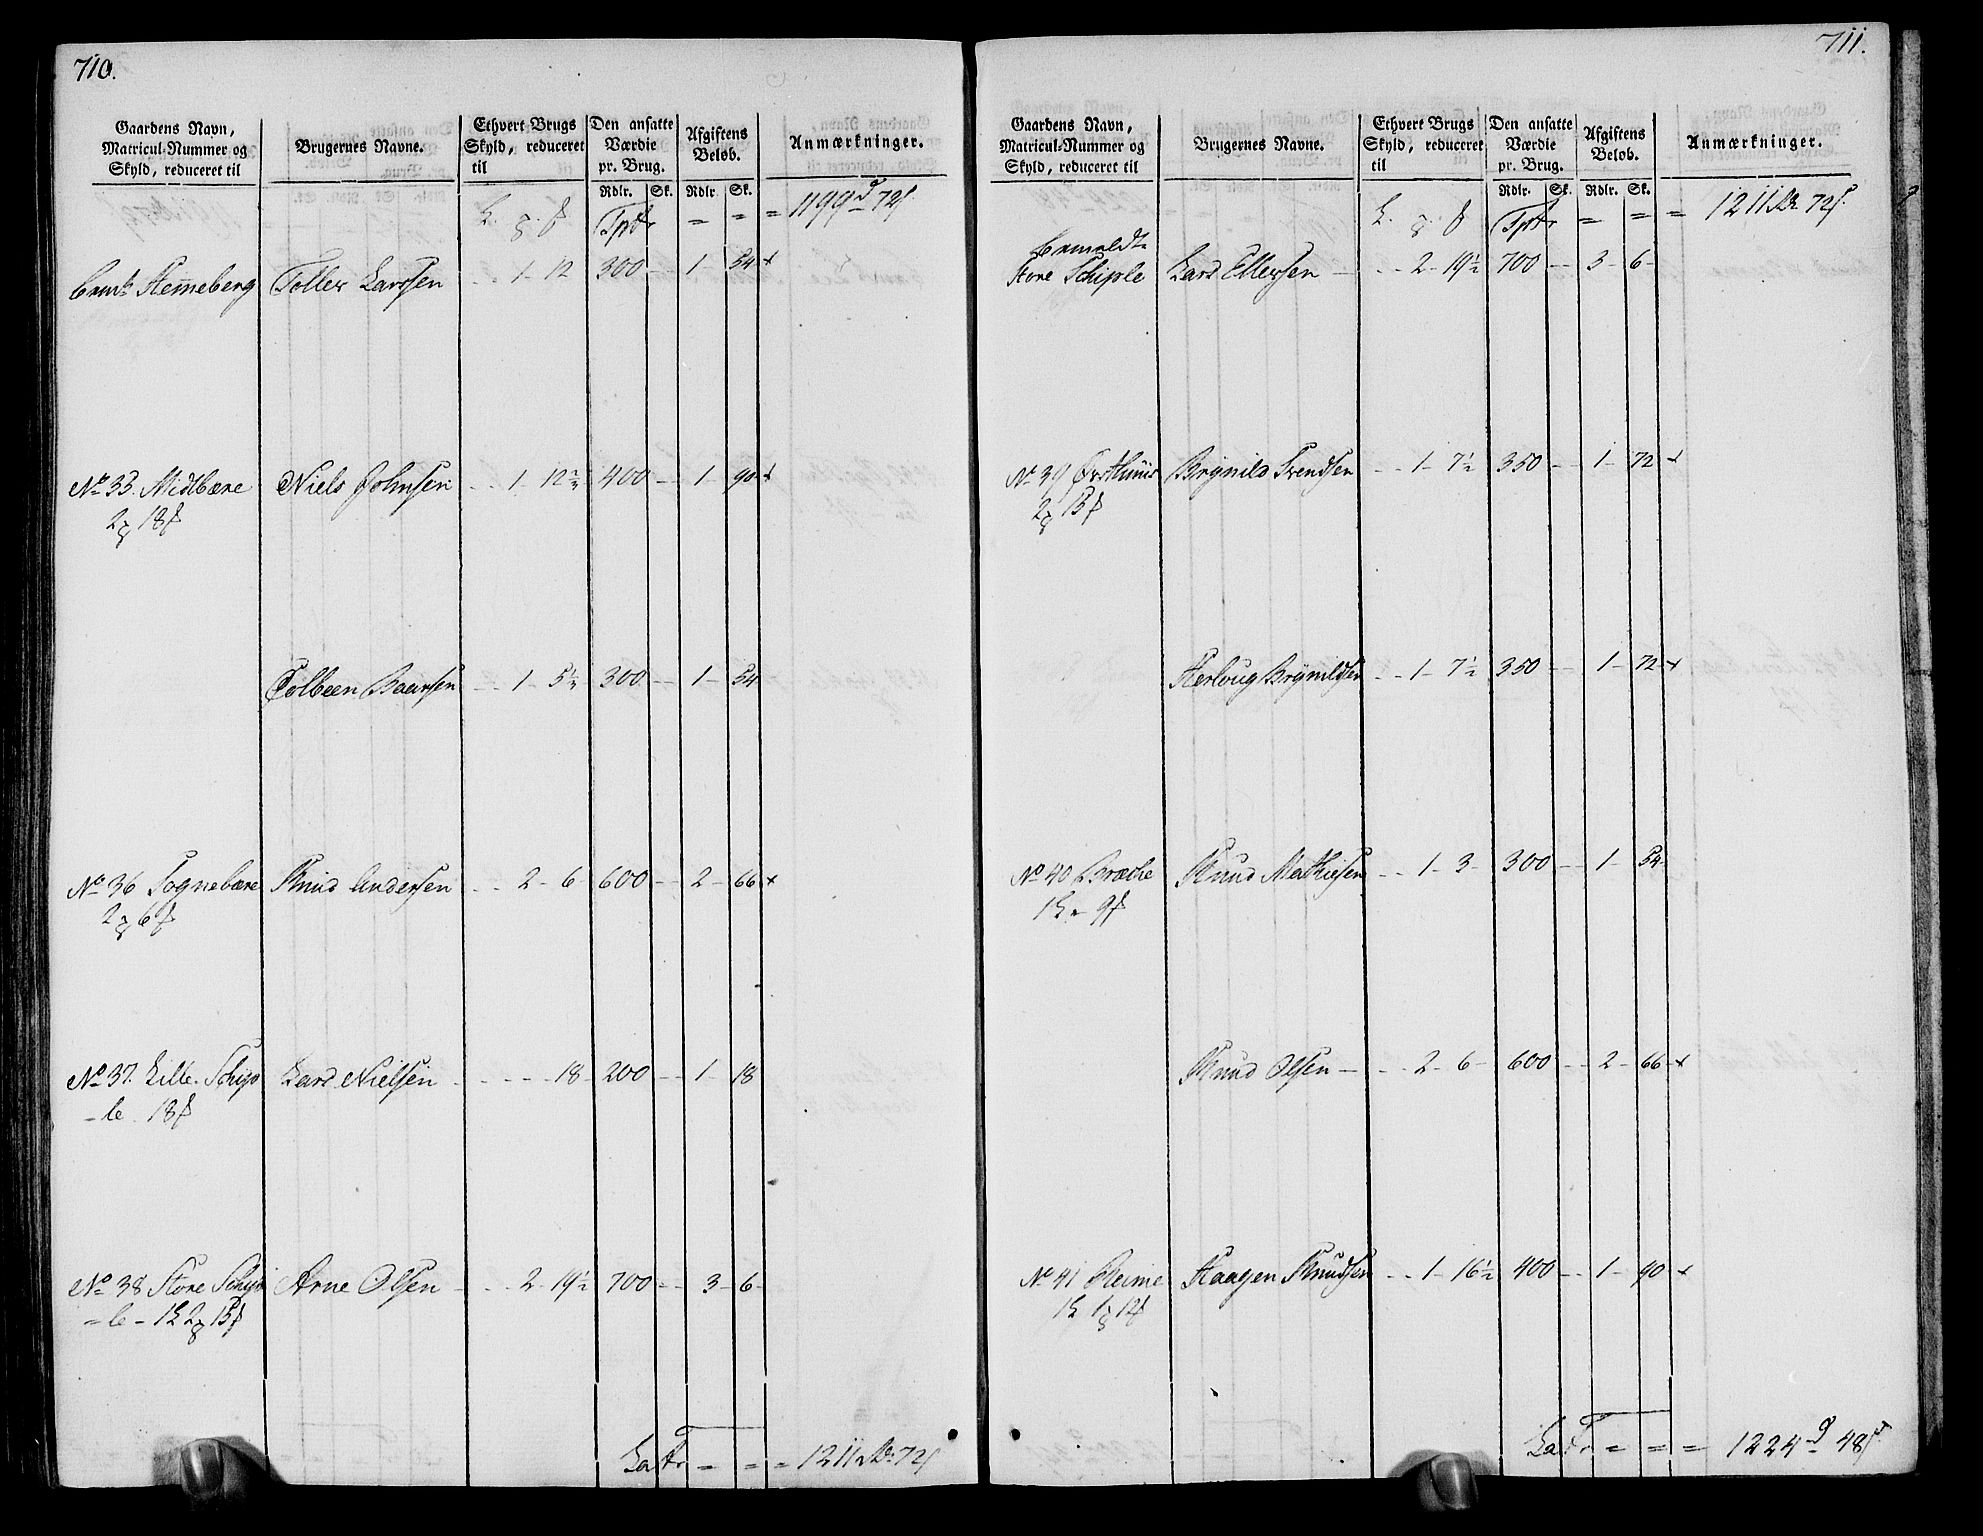 710.
Gaardens Navn, Matricul-Nummer og Skyld, reduceret til
Brugernes Navne.
Ethvert Brugs Skyld, reduceret til
Den ansatte Værdie pr. Brug.
Afgiftens Belöb.
Anmærkninger.
Rdlr. Sk. Rdlr. Sk.
Tpt = = = 1199 72
Henneberg Toller Larssen 1 - 12 300 - 1 - 54 x
No 35. Midlbære Niels Johnsen 1 12 400 - 1 - 90 x
2 18
Tolbeen Baarsen 1 - 5½ 300 - 1 - 54
No 36 Sognebære Knud Andersen 2 - 6 600 - 2 - 66 x
2 6
No 37. Lille Schip Lars Nielsen 18 - 200 - 1 - 18
-le 18
No 38 Store Schip Arne Olsen 2 - 19½ 700 - 3 - 6
=le - 1 2 15
Lat = = = 1211 72
711.
Gaardens Navn, Matricul-Nummer og Skyld, reduceret til
Brugernes Navne.
Ethvert Brugs Skyld, reduceret til
Den ansatte Værdie pr. Brug.
Afgiftens Belöb.
Anmærkninger.
Rdlr. Sk. Rdlr. Sk.
Tpt = = = 1211 72
Anmeldte
Store Schiple Lars Ellefsen 2 - 19½ 700 - 3 - 6
No 39 Brynild Svendsen 1 - 7½ 350 - 1 - 72 x
2 15
Herloug Brynildsen 1 - 7½ 350 - 1 - 72 x
No 40 Bræche Knud Mathiesen 1 - 3 300 - 1 - 54
1 - 9
Knud Olsen 2 - 6 600 - 2 - 66 x
No 41 Haagen Knudsen 1 - 16½ 400 - 1 - 90 x
1 1 12
Lat = = = 1224 48